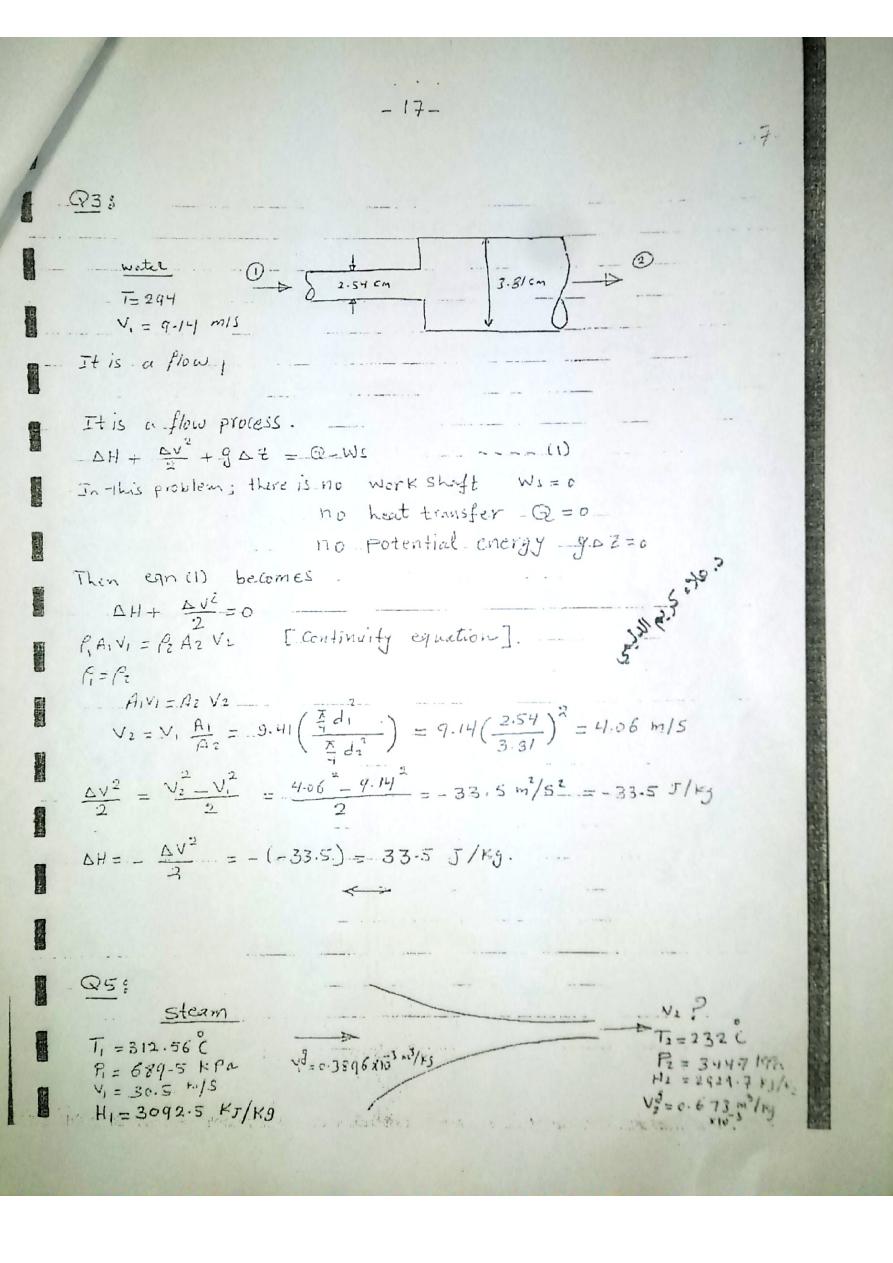 - 17 -
7
Q3:
water
① 2.54 cm 3.31 cm ②
T = 294
V₁ = 9.14 m/s
It is a flow,
It is a flow process.
ΔH + ΔV²/2 + g ΔZ = Q - Ws ----- (1)
In this problem; there is no work shaft Ws = 0
no heat transfer Q = 0
no potential energy gΔZ = 0
Then eqn (1) becomes
ΔH + ΔV²/2 = 0
ρ₁A₁V₁ = ρ₂ A₂ V₂ [Continuity equation].
ρ₁ = ρ₂
A₁V₁ = A₂ V₂
V₂ = V₁ A₁/A₂ = 9.41 (π/4 d₁² / π/4 d₂²) = 9.14 (2.54/3.31)² = 4.06 m/s
ΔV²/2 = (V₂² - V₁²)/2 = (4.06² - 9.14²)/2 = -33.5 m²/s² = -33.5 J/kg
ΔH = - ΔV²/2 = -(-33.5) = 33.5 J/kg.
Q5:
Steam
T₁ = 312.56 °C
P₁ = 689.5 kPa
V₁ = 30.5 m/s
H₁ = 3092.5 KJ/Kg
= 0.3896 x10⁻³ m³/kg
V₂ ?
T₂ = 232 °C
P₂ = 344.7
H₂ = 2929.7 KJ/
V₂ᵍ = 0.673 m³/kg
x10⁻³